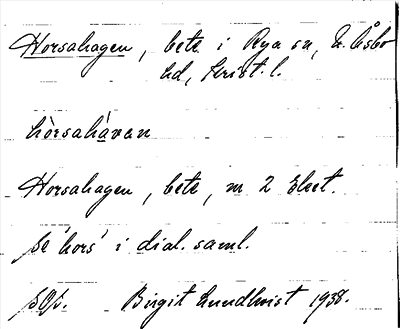 Horsahagen, bete i Rya sn, N. Åsbo
hd, Krist. l.
hòrsahá̱van
Horsahagen, bete, m 2 Eket.
se 'hors' i dial. saml.
Birgit Lundkvist 1938.